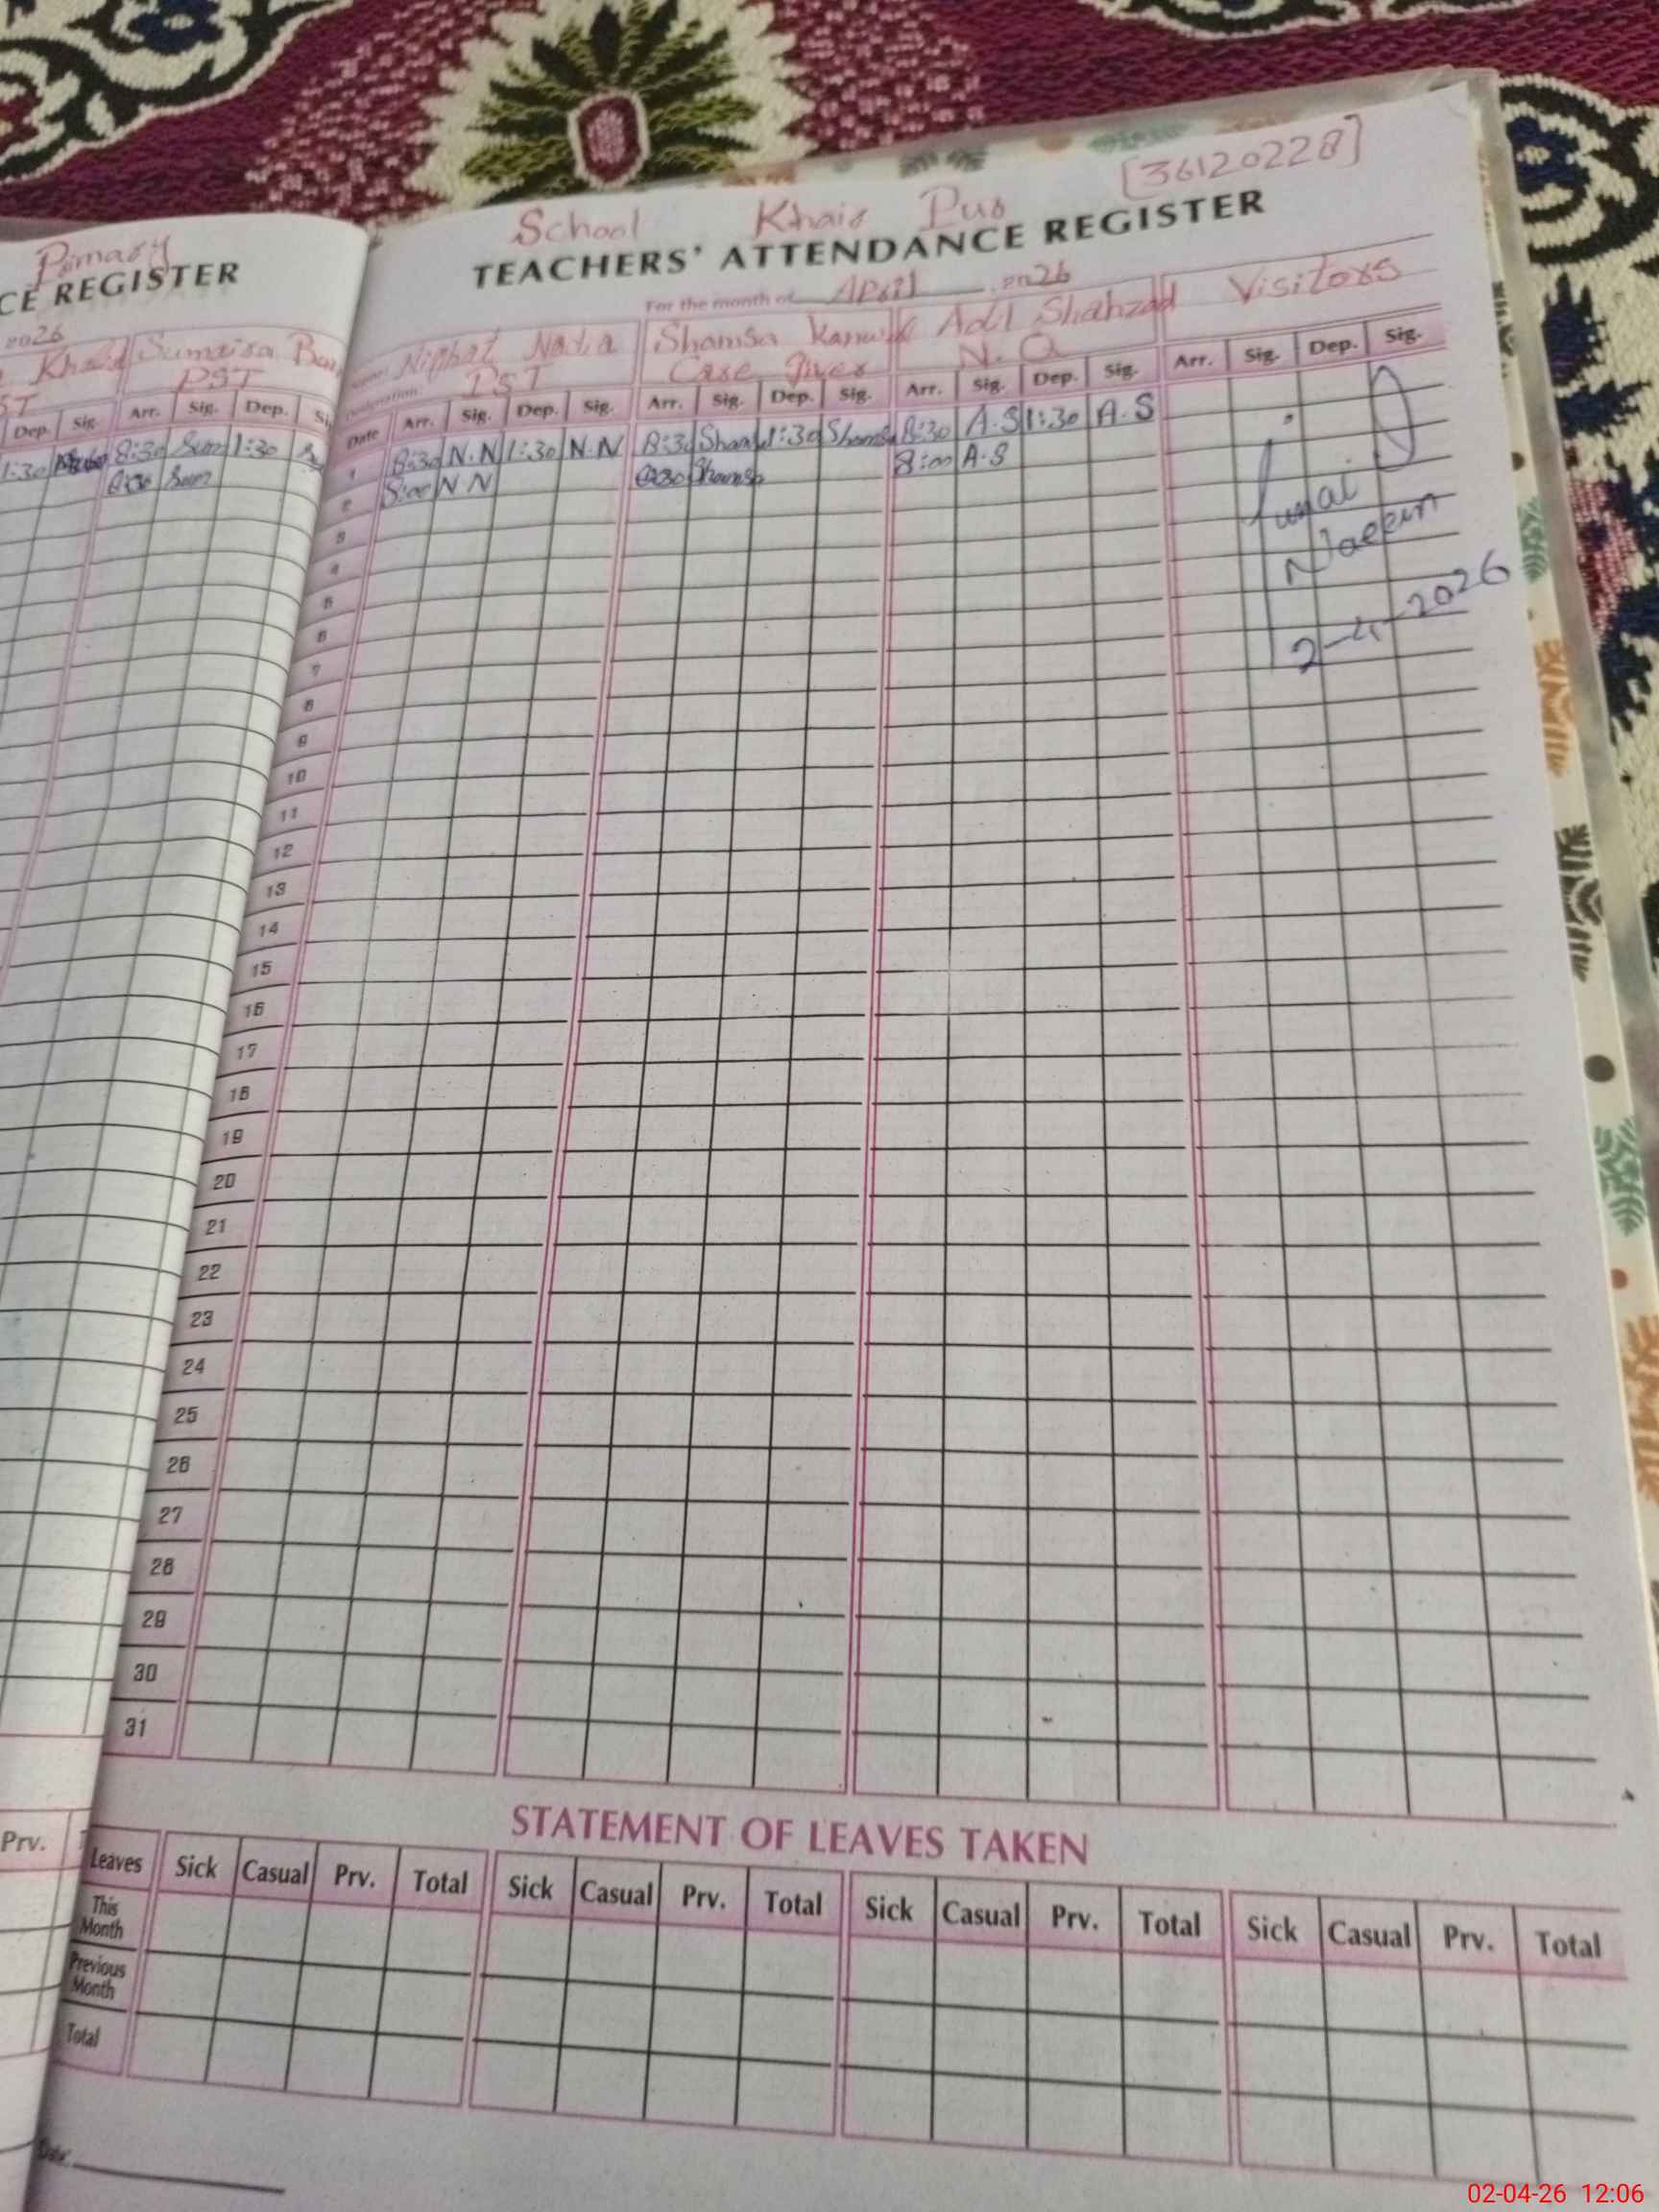 Primary
CE REGISTER
2026
Khalid Sumaira
PST
Dep. Sig. Arr. Sig. Dep.
1:30 8:30 Sum 1:30
8:30 Sum
School Khair Pur [36120228]
TEACHERS' ATTENDANCE REGISTER
For the month of April 2026
Nighat Nadia Shamsa Kanwal Adil Shahzad Visitors
Designation: PST Care Giver N.Q
Date Arr. Sig. Dep. Sig. Arr. Sig. Dep. Sig. Arr. Sig. Dep. Sig. Arr. Sig. Dep. Sig.
1 8:30 N.N 1:30 N.N 8:30 Shamsa 1:30 Shamsa 8:30 A.S 1:30 A.S
2 8:00 N N 8:30 Shamsa 8:00 A.S
3
4
5
6
7
8
9
10
11
12
13
14
15
16
17
18
19
20
21
22
23
24
25
26
27
28
29
30
31
Naeem
2-4-2026
STATEMENT OF LEAVES TAKEN
Prv.
Leaves Sick Casual Prv. Total Sick Casual Prv. Total Sick Casual Prv. Total Sick Casual Prv. Total
This Month
Previous Month
Total
Date:
02-04-26 12:06